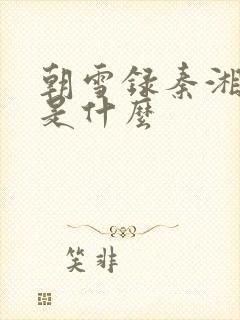 朝雪录秦湘
是什麽
笑非